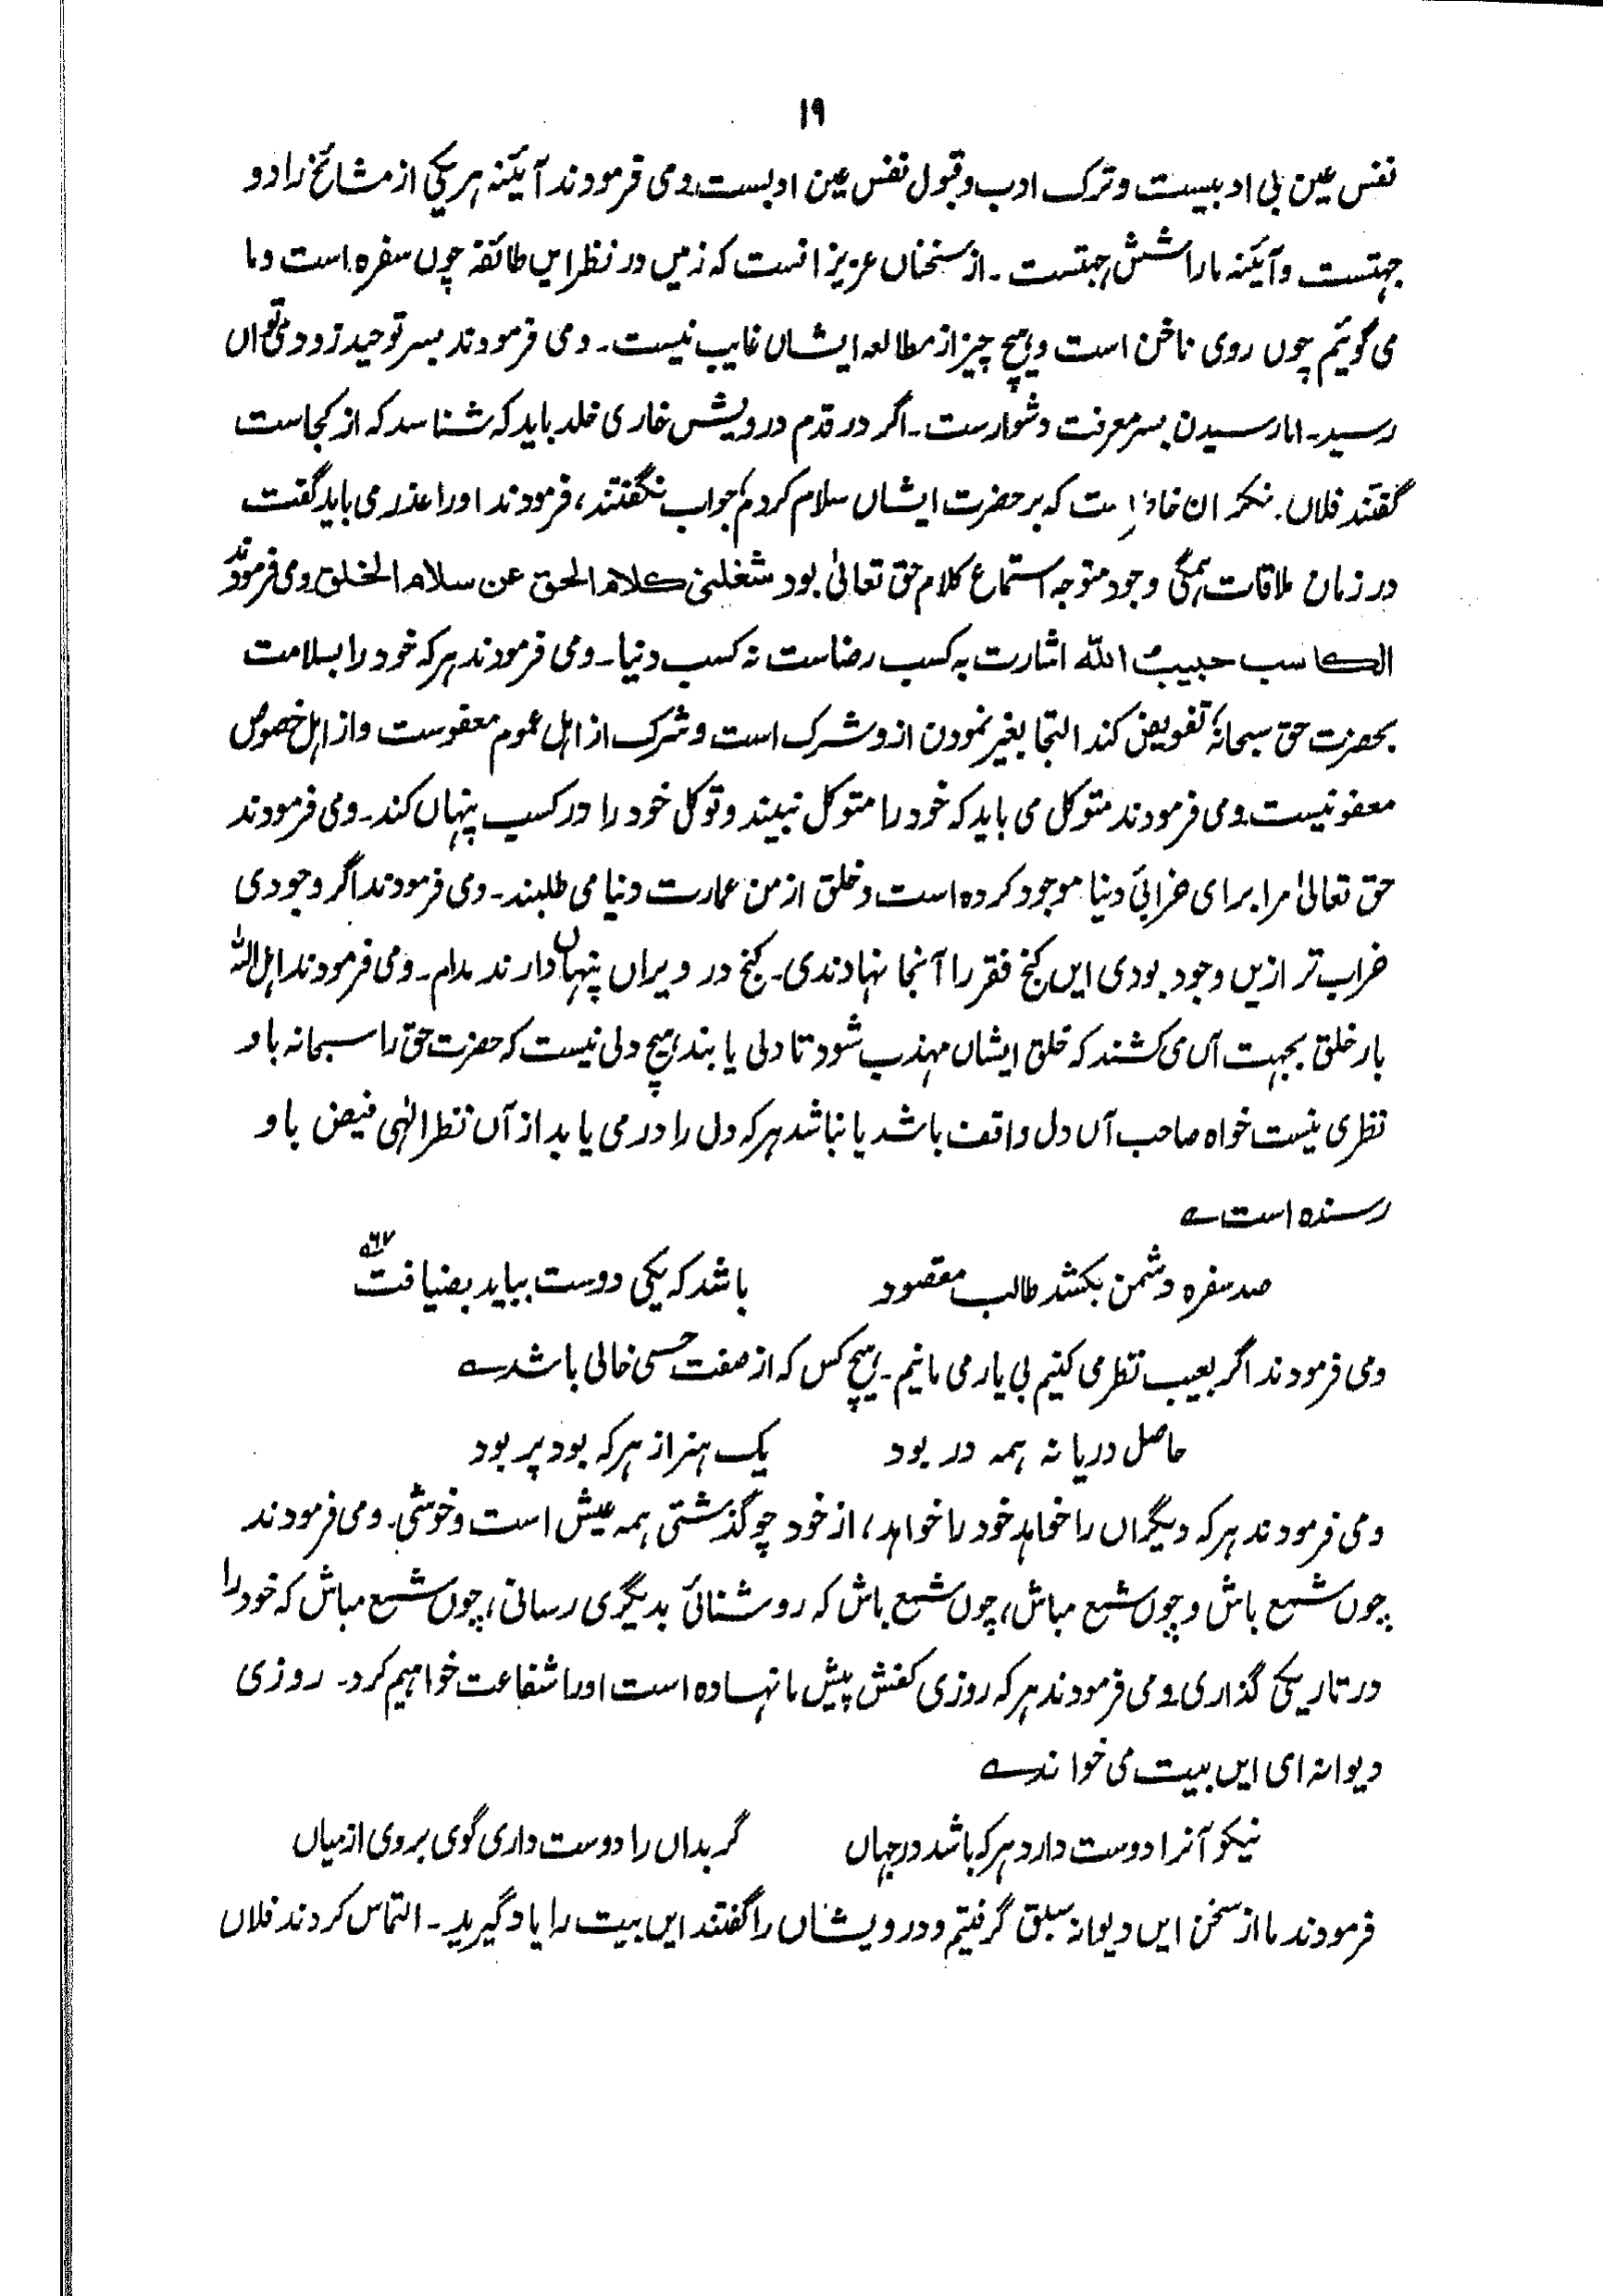 ۱۹
نفس عین بی ادبیست و ترک ادب و قبول نفس عین ادبست و می فرمودند آئینه هر یکی از مشائخ را دو
جہتست و آئینه ما را شش جہتست ۔ از سخناں عزیز انست که زمیں در نظر ایں طائفه چوں سفره است و ما
می گوئیم چوں روی ناخن است و ہیچ چیز از مطالعه ایشاں غایب نیست ۔ و می فرمودند بسر توحید زود می تواں
رسید ۔ اما رسیدن بسر معرفت دشوارست ۔ اگر در قدم درویش خاری خلد باید که شناسد که از کجاست
گفتند فلاں . که بر حضرت ایشاں سلام کردم جواب نگفتند ، فرمودند او را عذر می باید گفت
در زمان ملاقات ہمگی وجود متوجه استماع کلام حق تعالیٰ بود شغلنی کلام الحق عن سلام الخلق و می فرمودند
الکاسب حبیب اللّٰه اشارت به کسب رضاست نه کسب دنیا ۔ و می فرمودند ہر که خود را بسلامت
بحضرت حق سبحانہٗ تفویض کند التجا بغیر نمودن ازو شرک است و شرک از اہل عموم معفوست و از اہل خصوص
معفو نیست و می فرمودند متوکل می باید که خود را متوکل نبیند و توکل خود را در کسب پنہاں کند ۔ و می فرمودند
حق تعالیٰ مرا برای خرابیٔ دنیا موجود کرده است و خلق از من عمارت دنیا می طلبند ۔ و می فرمودند اگر وجودی
خراب تر ازیں وجود بودی ایں گنج فقر را آنجا نہادندی ۔ گنج در ویراں پنہاں دارند مدام ۔ و می فرمودند اہل اللّٰه
بار خلق بجہت آں می کشند که خلق ایشاں مہذب شود تا دلی یابند ہیچ دلی نیست که حضرت حق را سبحانه باو
نظری نیست خواه صاحب آں دل واقف باشد یا نباشد ہر که دل را در می یابد از آں نظر الہٰی فیض باو
رسنده است ؎
صد سفره دشمن بکشد طالب مقصود باشد که یکی دوست بیاید بضیافت
و می فرمودند اگر بعیب نظر می کنیم بی یار می مانیم ۔ ہیچ کس که از صفت حسی خالی باشد ؎
حاصل دریا نه ہمه در بود یک ہنر از ہر که بود پر بود
و می فرمودند ہر که دیگراں را خواہد خود را خواہد ، از خود چو گذشتی ہمه عیش است و خوشی ۔ و می فرمودند
چوں شمع باش و چوں شمع مباش ، چوں شمع باش که روشنائی بدیگری رسانی ، چوں شمع مباش که خود را
در تاریکی گذاری و می فرمودند ہر که روزی کفش پیش ما نہاده است او را شفاعت خواہیم کرد ۔ روزی
دیوانه ای ایں بیت می خواند ؎
نیکو آنرا دوست دارد ہر که باشد در جہاں گر بداں را دوست داری گوی بروی از میاں
فرمودند ما از سخن ایں دیوانه سبق گرفتیم و درویشاں را گفتند ایں بیت را یاد گیرید ۔ التماس کردند فلاں